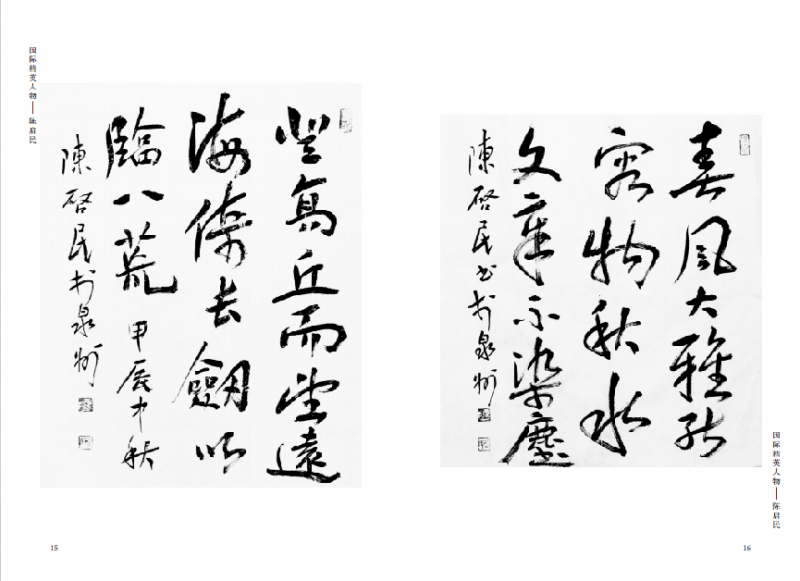 国际精英人物——陈启民
登高丘而望遠
海倚長劍以
臨八荒 甲辰中秋
陳啓民於泉州
15
春風大雅能
容物秋水
文章不染塵
陳啓民书於泉州
国际精英人物——陈启民
16